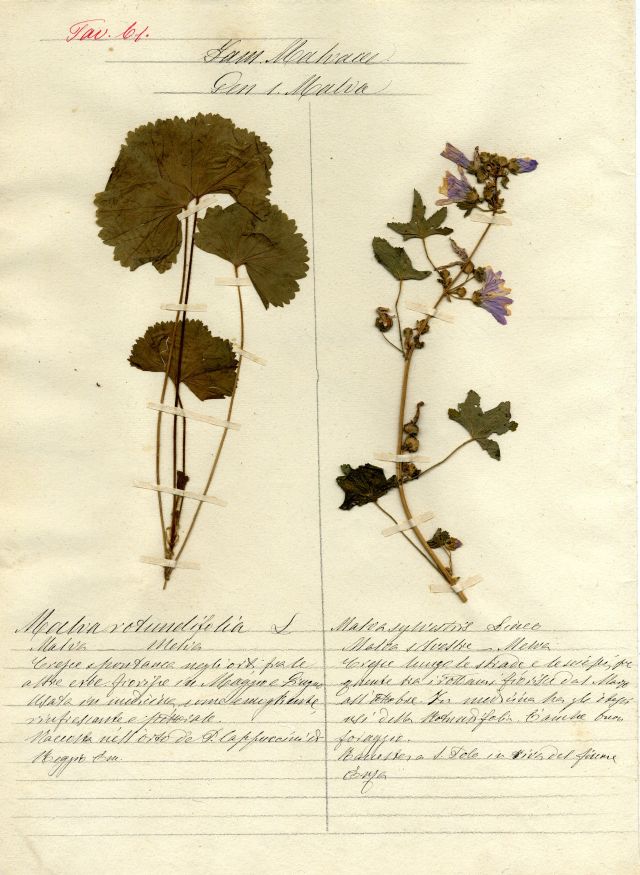 Tav. 61.
Fam. Malvacee
Gen 1. Malva
Malva rotundifolia L
Malva Melva
Cresce spontanea negli orti, fra le
altre erbe fiorisce in Maggio e Giugno
Usata in medicina come emolliente,
rinfrescante e pettorale.
Raccolta nell'orto de P. Cappuccini di
Reggio Em.
Malva sylvestris Lineo
Malva silvestre Melva
Cresce lungo le strade e le siepi, fre
quente tra i rottami fiorisce dal Maggio
all'Ottobre. In medicina ha gli stessi
usi della Rotundifolia. È anche buon
foraggio.
Raccolta a S. Polo in riva del fiume
Enza